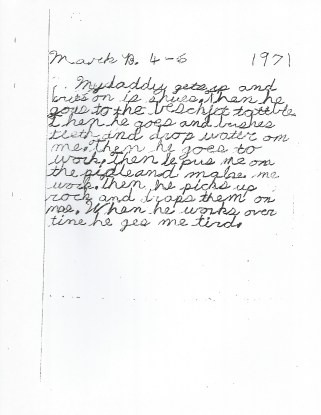 March B. 4-5 1971
My daddy gets up and
puts on is shues. Then he
goys to the
Then he goes and bushes
teeth and drop water on
me. Then he goes to
work. Then he pus me on
the and make me
work. Then he picks up
rock and draps them on
me. When he works over
time he ges me tird.